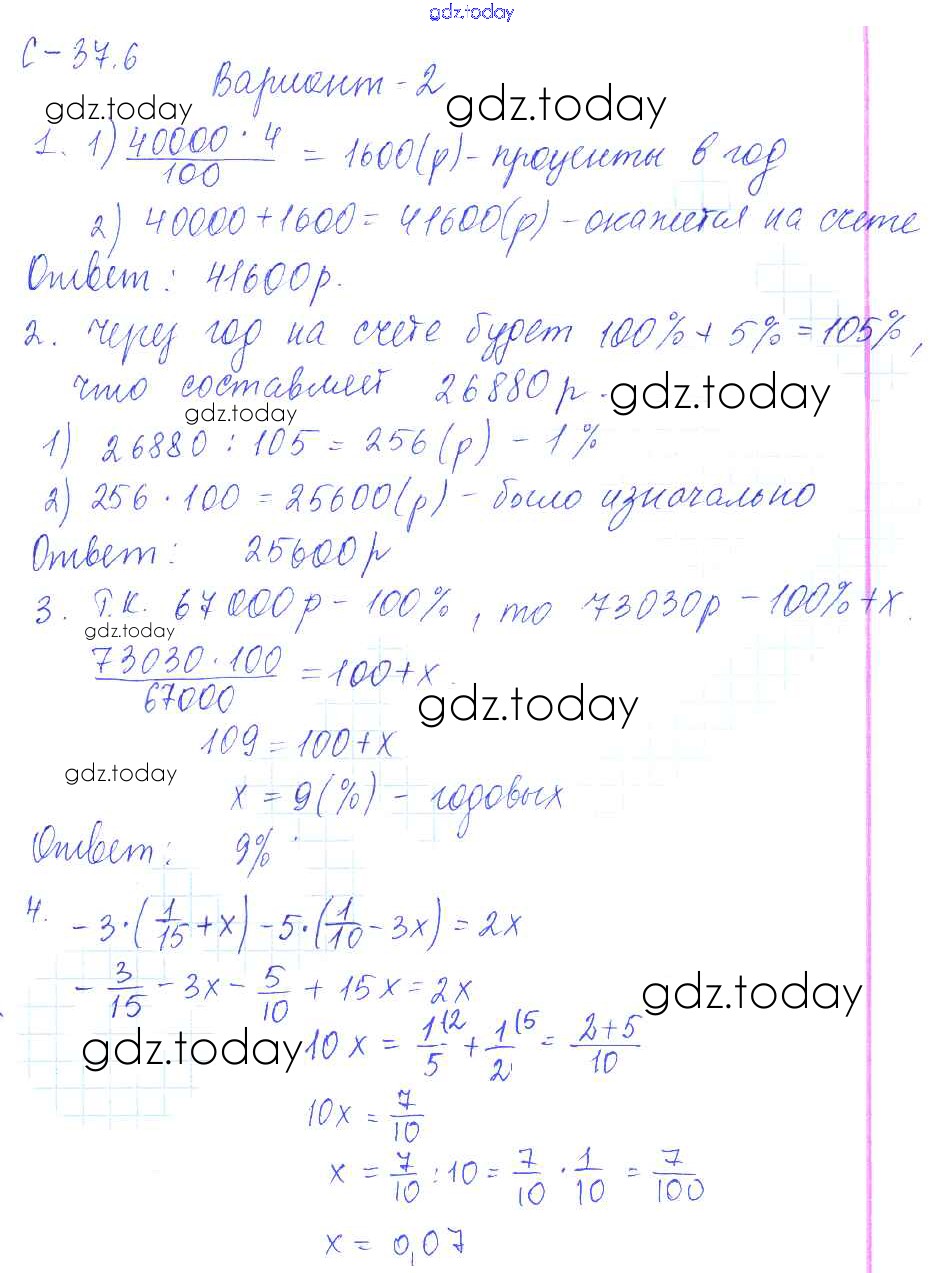 gdz.today
С-37.6
Вариант-2
gdz.today gdz.today
1. 1) 40000 · 4 / 100 = 1600(р) - проценты в год
2) 40000 + 1600 = 41600(р) - окажется на счете
Ответ: 41600р.
2. Через год на счете будет 100% + 5% = 105%,
что составляет 26880 р. gdz.today
gdz.today
1) 26880 : 105 = 256(р) - 1%
2) 256 · 100 = 25600(р) - было изначально
Ответ: 25600р
3. Т.К. 67000р - 100%, то 73030р - 100% + x.
gdz.today
73030 · 100 / 67000 = 100 + x.
gdz.today
109 = 100 + x
gdz.today
x = 9(%) - годовых
Ответ: 9%
4. -3 · (1/15 + x) - 5 · (1/10 - 3x) = 2x
-3/15 - 3x - 5/10 + 15x = 2x
gdz.today
gdz.today
10x = 1(2/5 + 1(5/2 = 2+5/10
10x = 7/10
x = 7/10 : 10 = 7/10 · 1/10 = 7/100
x = 0,07